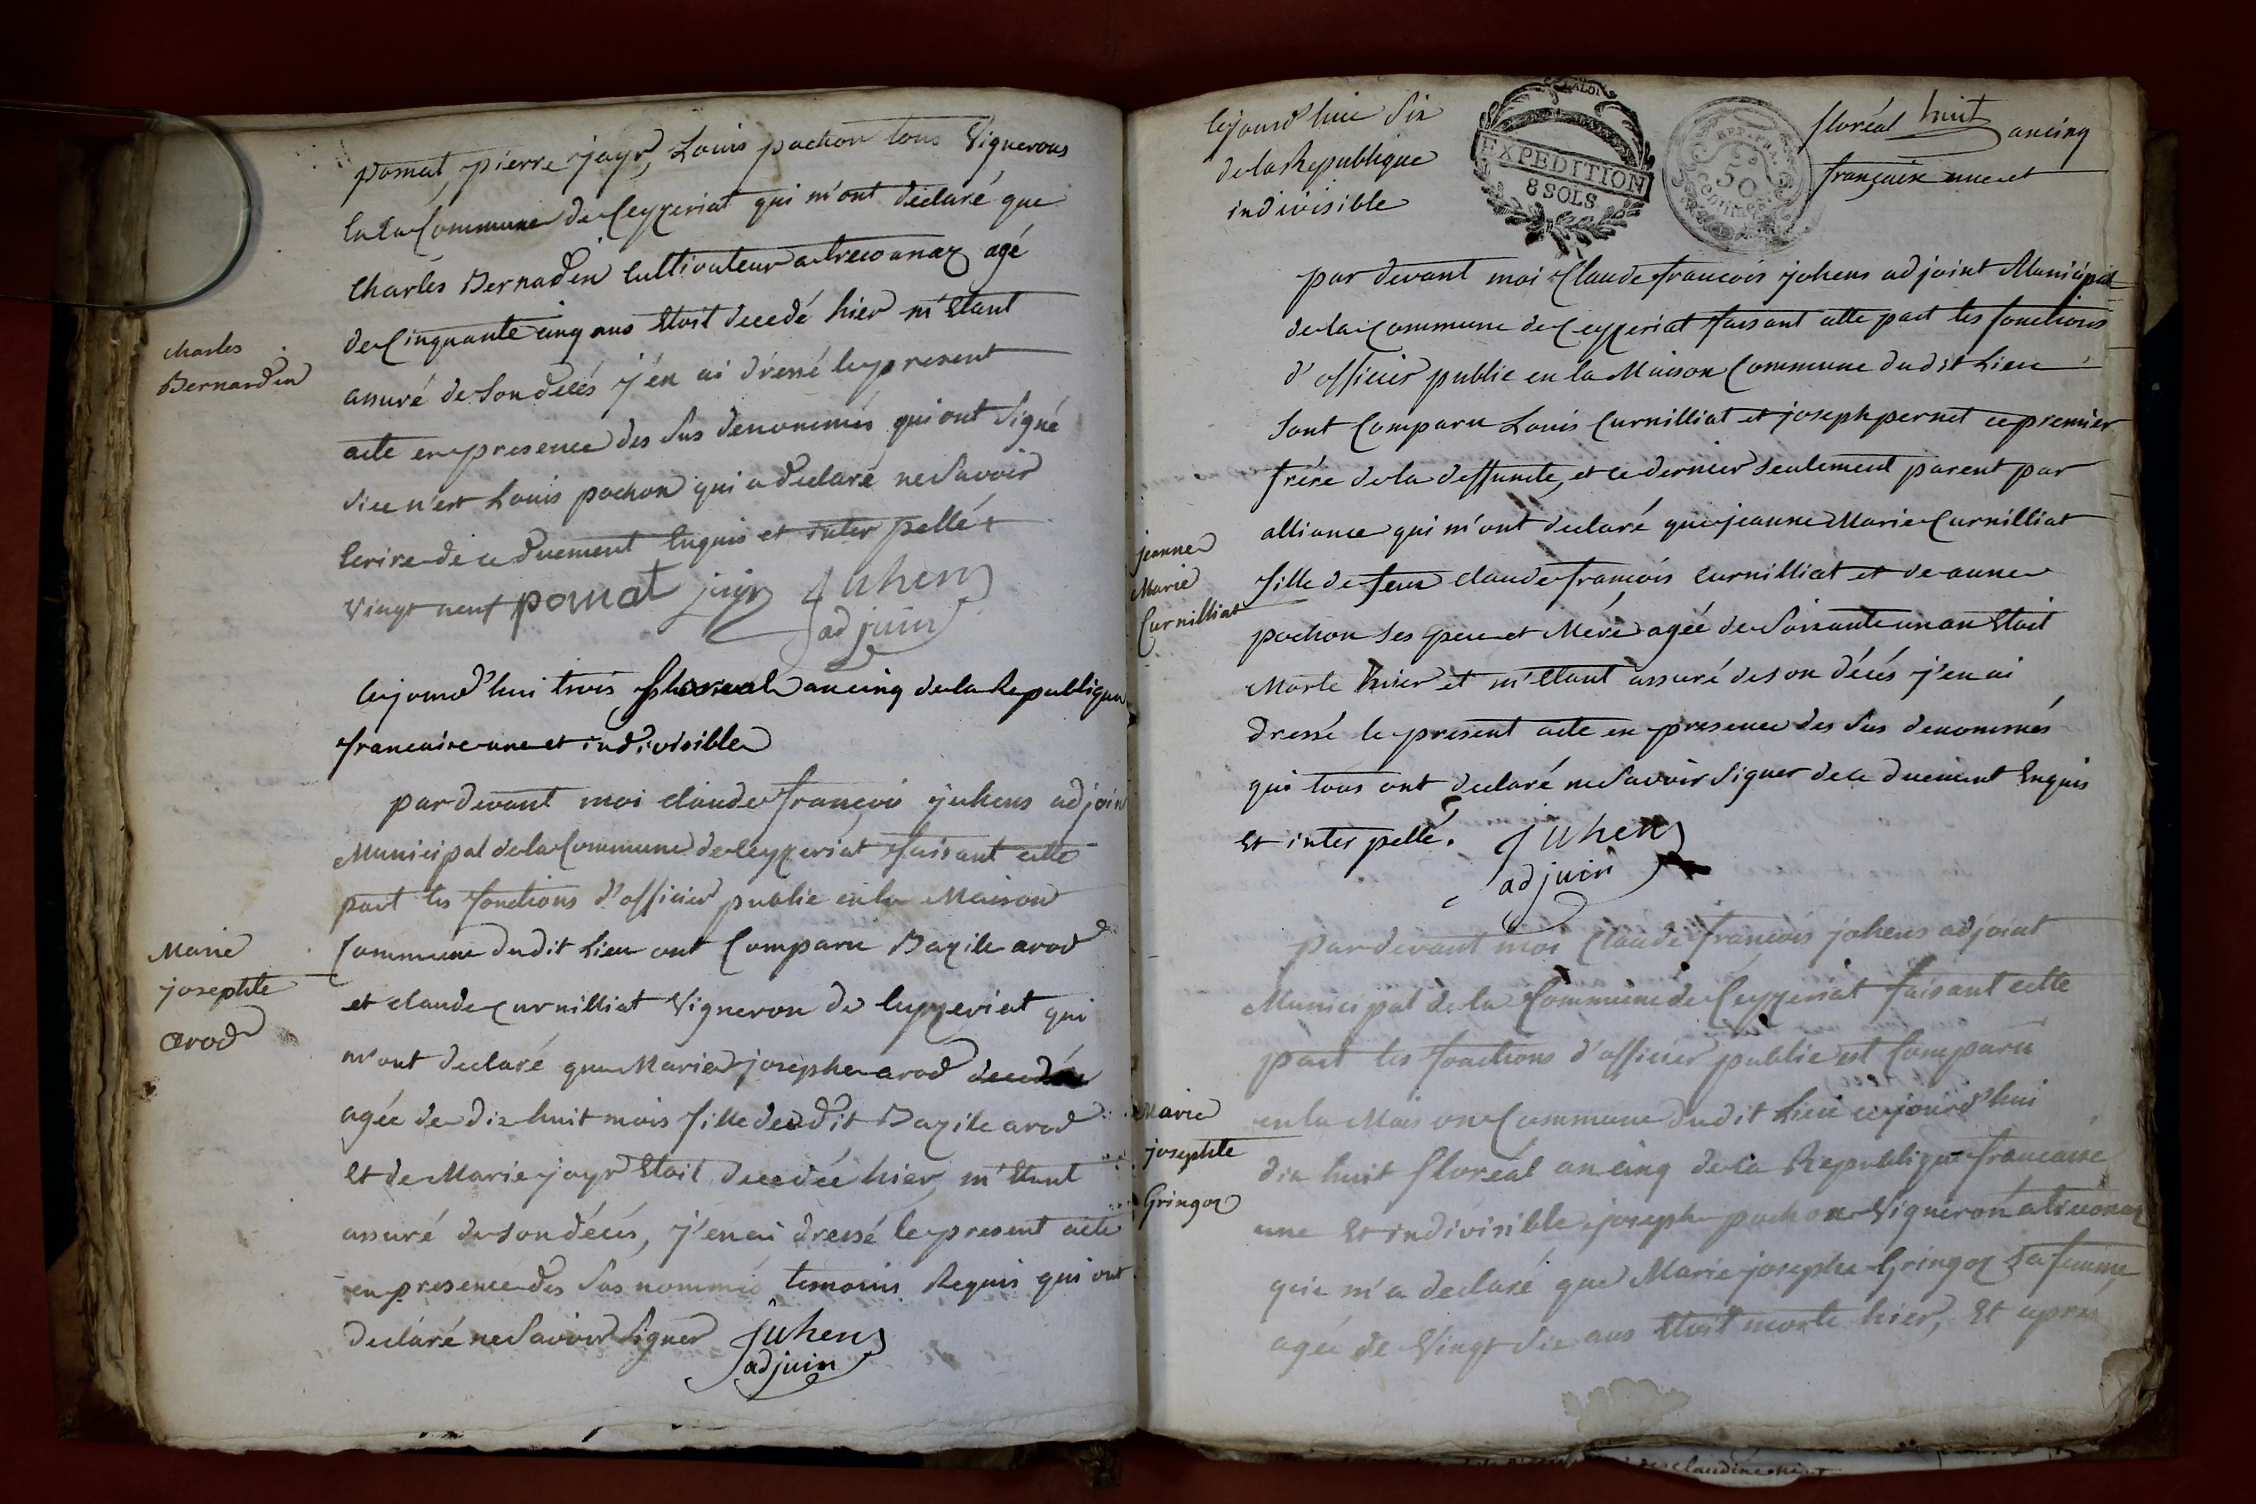 pomat, pierre jayr, Louis pochon tous Vignerons
la la Commune de Ceyzeriat qui m'ont déclaré que
Charles Bernardin Cultivateur a treconnaz agé
de Cinquante cinq ans Etoit decedé hier m'Etant
assuré de Son decés j'en ai dressé le present
acte en presence des Sus denommés qui ont Signé
Si ce n'est Louis pochon qui a declaré ne Savoir
Ecrire de ce duement Enquis et interpellé
Vingt neuf pomat jayr Juhen
adjuin
Charles
Bernardin
Cejourd'hui trois floreal an cinq de la Republique
francaise une et indivisible
par devant moi claude françois juhens adjoin
Municipal de la Commune de Ceyzeriat faisant cette
part les fonctions d'officier public en la Maison
Commune dudit Lieu ont Comparu Bazile arod
et claude Curnilliat Vigneron de Ceyzeriat qui
m'ont declaré que Marie josephe arod
agée de dix huit mois fille dudit Bazile arod
Et de Marie jayr Etoit decedée hier, m'Etant
assuré de son décés, j'en ai dressé le present acte
en presence des Sus nommés temoins Requis qui ont
declaré ne Savoir Signer Juhen
adjuin
Marie
josephte
arod
Cejourd'hui Six floréal huit an cinq
de la Republique française une et
indivisible
EXPEDITION
8 SOLS
50
par devant moi Claude francois johens adjoint Municipal
de la Commune de Ceyzeriat faisant cette part les fonctions
d'officier public en la Maison Commune dudit Lieu
Sont Comparu Louis Curnilliat et joseph pernet ce premier
frére de la deffunte, et ce dernier seulement parent par
alliance qui m'ont declaré que jeanne Marie Curnilliat
fille de feux claude françois Curnilliat et de anne
pochon Ses pere et Mére agée de Soixante un an Etoit
Morte hier et m'Etant assuré de son décés j'en ai
dressé le present acte en presence des Sus denommés
qui tous ont declaré ne Savoir Signer de ce duement Enquis
Et interpellé. Juhen
adjuin
jeanne
Marie
Curnilliat
par devant moi Claude francois johens adjoint
Municipal de la Commune de Ceyzeriat faisant cette
part les fonctions d'officier public est Comparu
en la Maison Commune dudit Lieu cejourd'hui
dix huit floréal an cinq de la Republique francaise
une Et indivisible joseph pochon Vigneron a treconnaz
qui m'a declaré que Marie josephe Gringoz Sa femme
agée de Vingt Six ans Etoit morte hier, Et aprés
Marie
josephte
Gringoz